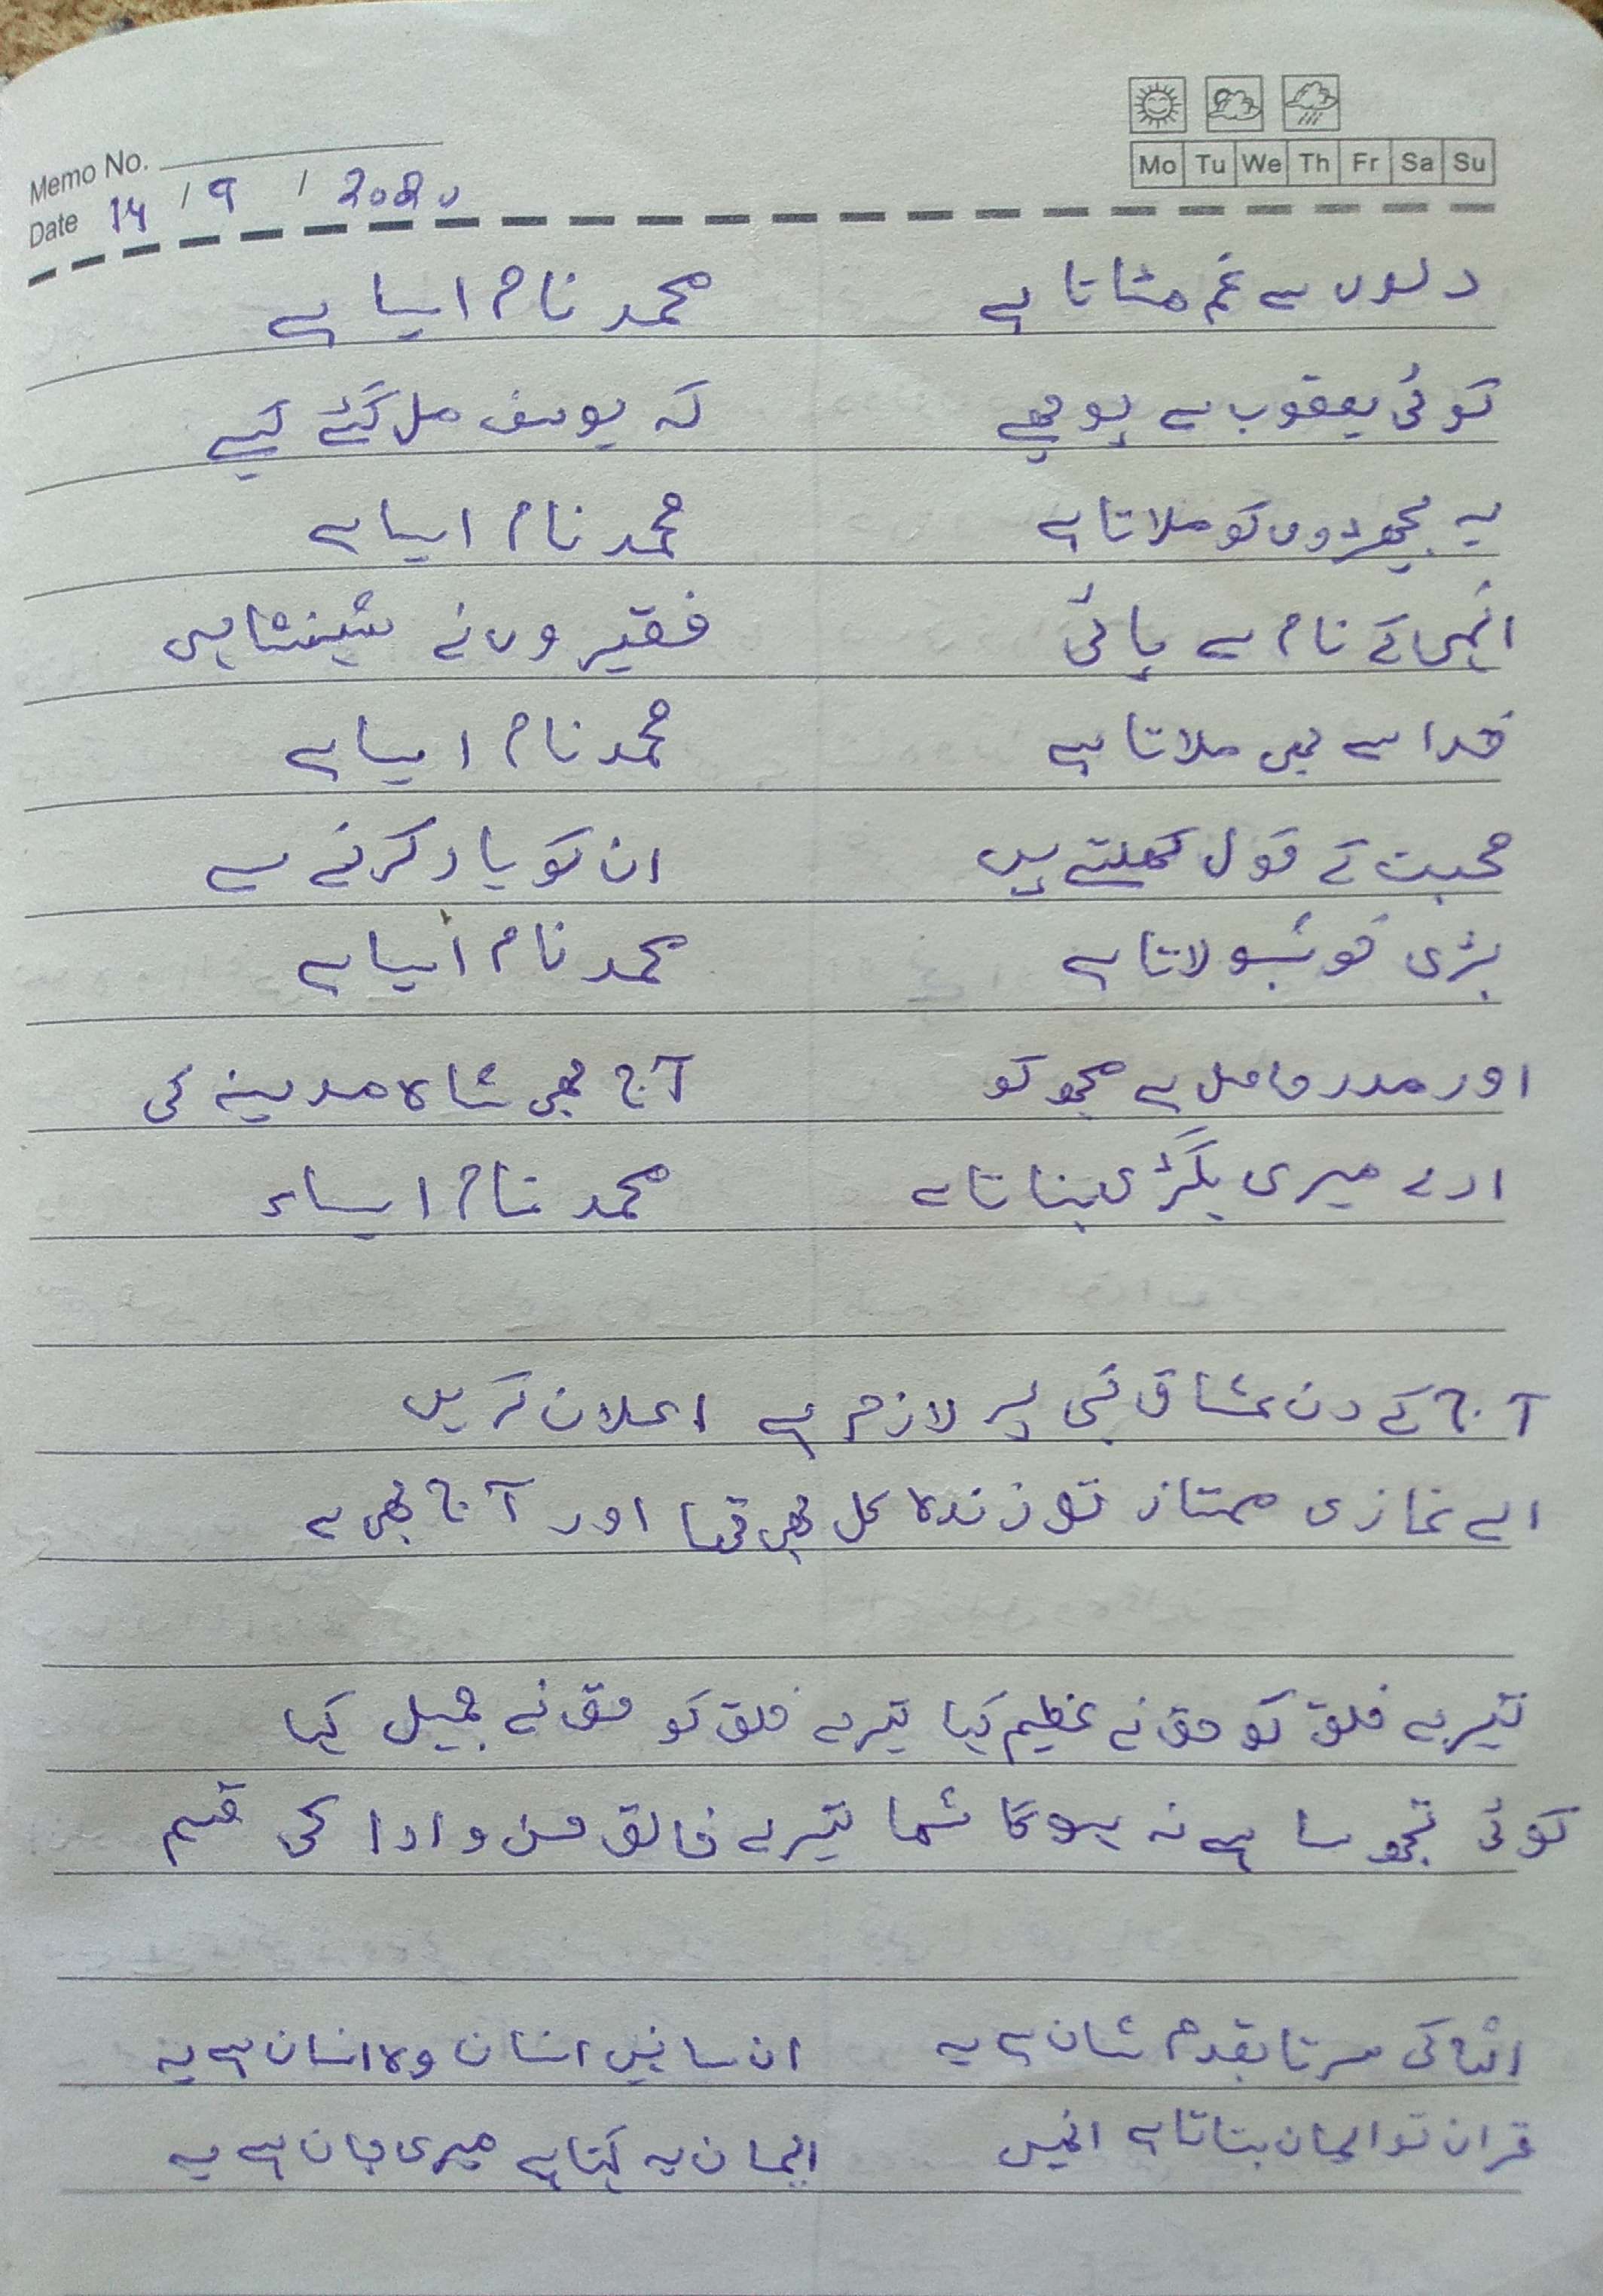 Memo No.
Date 14 / 9 / 2020
Mo Tu We Th Fr Sa Su
دلوں سے غم مٹاتا ہے محمد نام ایسا ہے
کوئی یعقوب سے پوچھے کہ یوسف مل گئے کیسے
یہ بچھڑوں کو ملاتا ہے محمد نام ایسا ہے
انہی کے نام سے پائی فقیروں نے شہنشاہی
خدا سے بھی ملاتا ہے محمد نام ایسا ہے
محبت کے کھلتے ہیں ان کو یاد کرنے سے
بڑی خوشبو لاتا ہے محمد نام ایسا ہے
اور مدد حاصل ہے مجھ کو آج بھی شاہ مدینہ کی
ارے میری بگڑی بناتا ہے محمد نام ایسا ہے
آج کے دن عشاق نبی پر لازم ہے اعلان کریں
اے غازی ممتاز تو زندہ کل بھی تھا اور آج بھی ہے
تیرے خلق کو حق نے عظیم کیا تیرے خلق کو حق نے جمیل کیا
کوئی تجھ سا ہے نہ ہوگا شہا تیرے خالق حسن و ادا کی قسم
اللہ کی سرتا بقدم شان ہے یہ ان سا نہیں انسان وہ انسان ہے یہ
قران تو ایمان بتاتا ہے انہیں ایمان یہ کہتا ہے میری جان ہے یہ